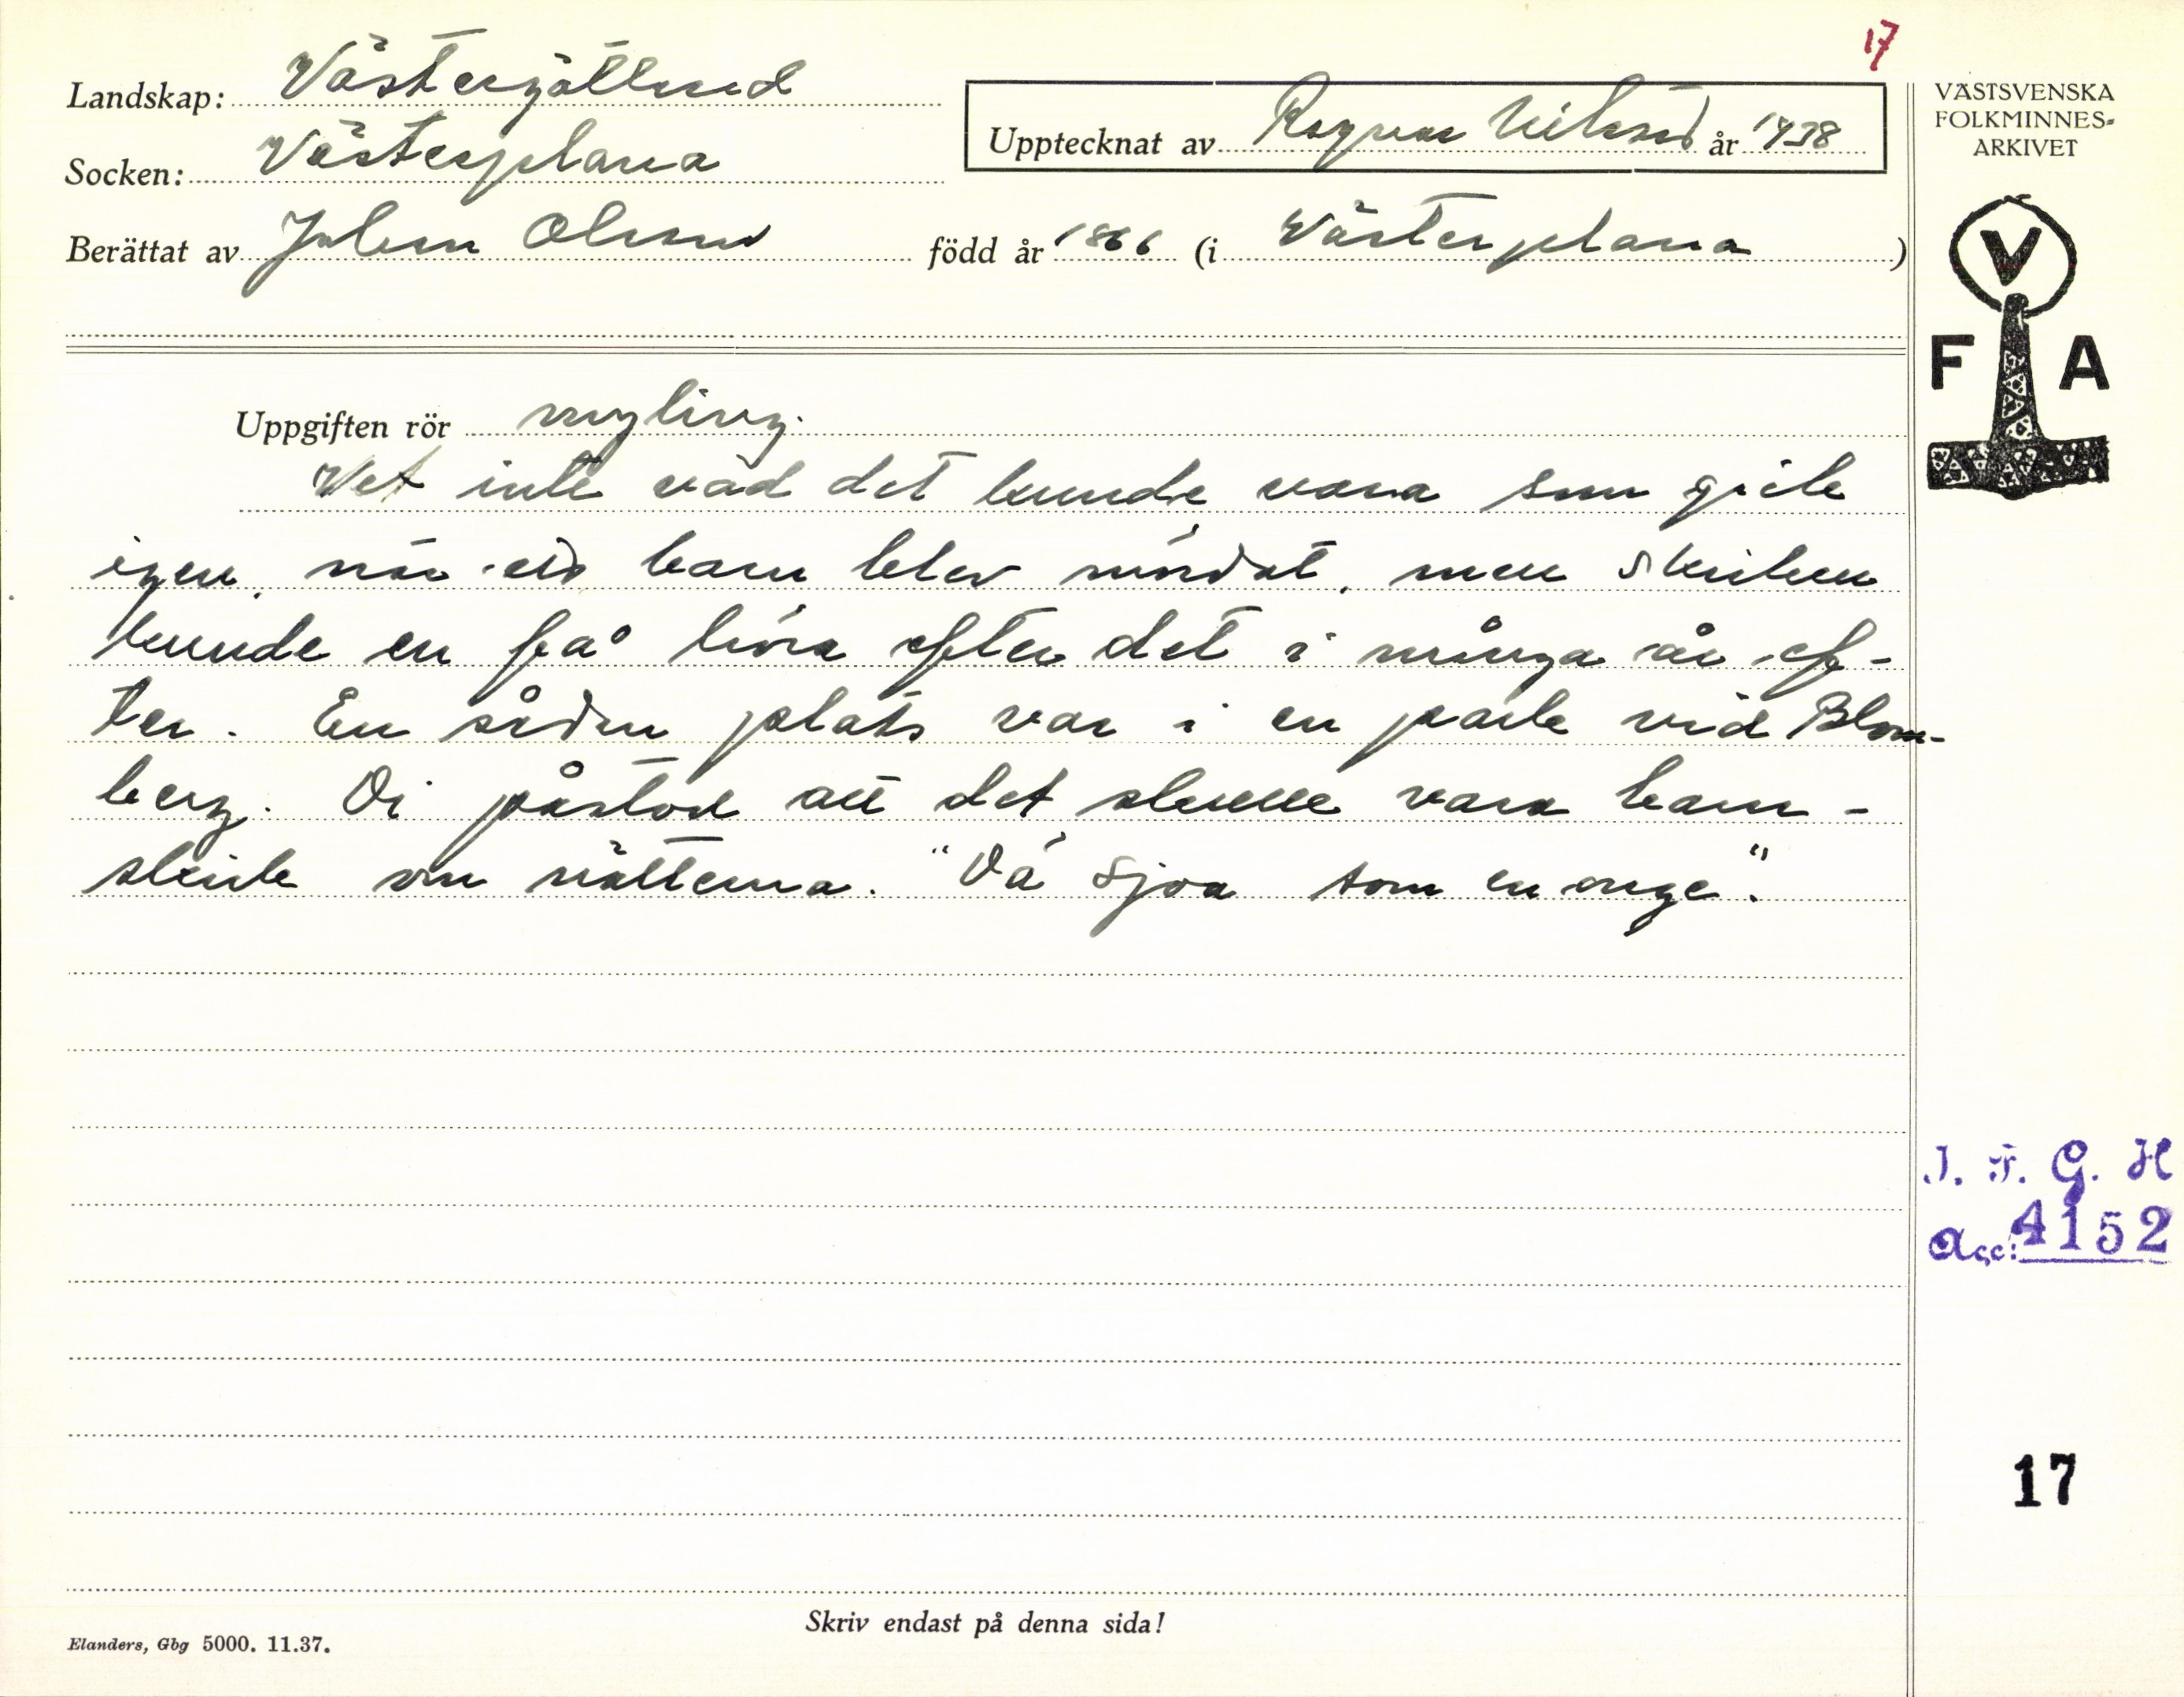 17
Landskap: Västergötland
Socken: Västerplana
Upptecknat av Ragnar Nilsson år 1938
Berättat av Johan Olsson född år 1866 (i Västerplana)
VÄSTSVENSKA
FOLKMINNES-
ARKIVET
V
F A
Uppgiften rör myling.
Vet inte vad det kunde vara som gick
igen, när ett barn blev mördat, men skriken
kunde en få höra efter det i många år ef-
ter. En sådan plats var i en park vid Blom-
berg. Di påstod att det skulle vara barn-
skrik om nätterna. "Dä sjöa som en onge".
I. F. G. H
Acc: 4152
17
Skriv endast på denna sida!
Elanders, Gbg 5000. 11.37.